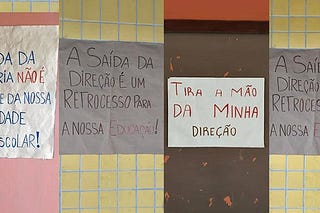 DA DA
RIA NÃO É
E DA NOSSA
DADE
SCOLAR!
A SAÍDA DA
DIREÇÃO É UM
RETROCESSO PARA
A NOSSA EDUCAÇÃO!
TIRA A MÃO
DA MINHA
DIREÇÃO
A SAÍDA
DIREÇÃO
RETROCES
A NOSSA E